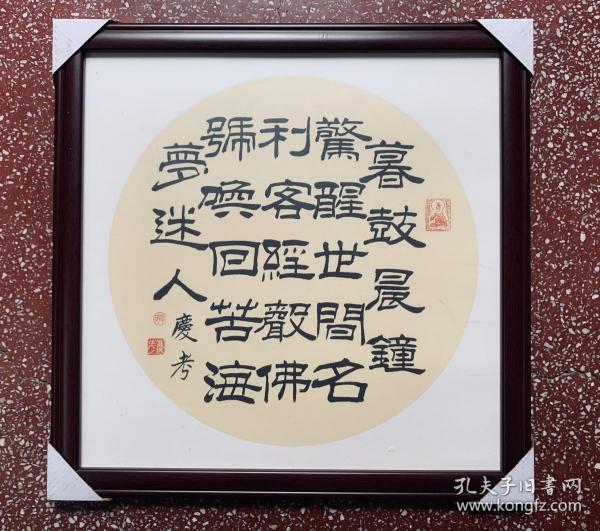 暮鼓晨鐘
驚醒世間名
利客經聲佛
號喚回苦海
夢迷人
慶考
孔夫子旧書网
www.kongfz.com